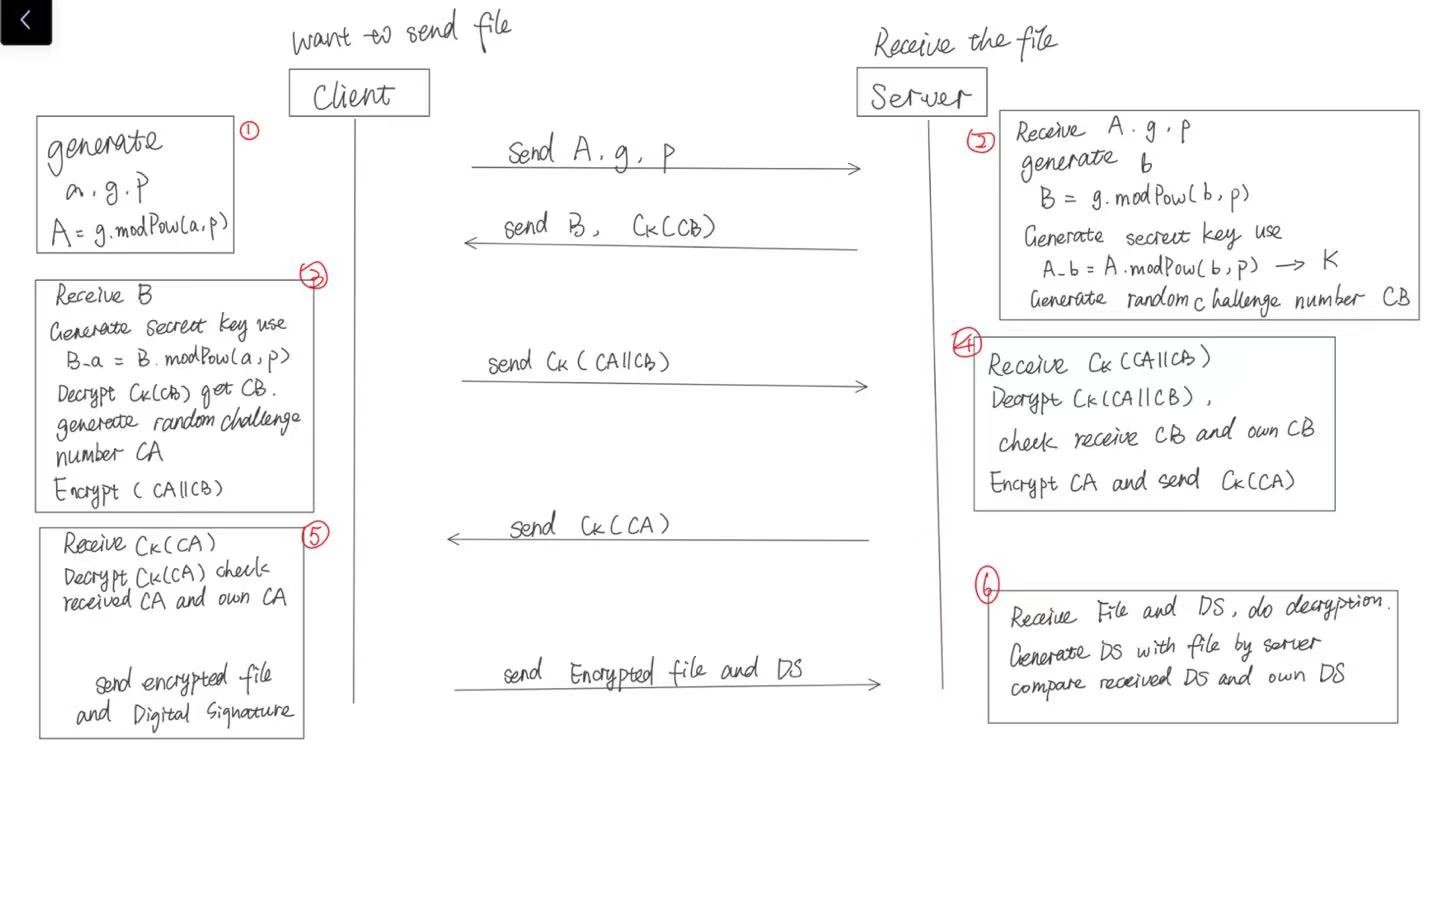 want to send file
Receive the file
Client
Server
①
generate
a. g. p
A = g.modPow(a,p)
Send A. g. p
②
Receive A. g. p
generate b
B = g.modPow(b,p)
Generate secret key use
A_b = A.modPow(b,p) → K
Generate random challenge number CB
send B, CK(CB)
③
Receive B
Generate secret key use
B_a = B.modPow(a,p)
Decrypt CK(CB) get CB.
generate random challenge
number CA
Encrypt (CA||CB)
send CK(CA||CB)
④
Receive CK(CA||CB)
Decrypt CK(CA||CB),
check receive CB and own CB
Encrypt CA and send CK(CA)
send CK(CA)
⑤
Receive CK(CA)
Decrypt CK(CA) check
received CA and own CA
send encrypted file
and Digital Signature
send Encrypted file and DS
⑥
Receive File and DS, do decryption.
Generate DS with file by server
compare received DS and own DS